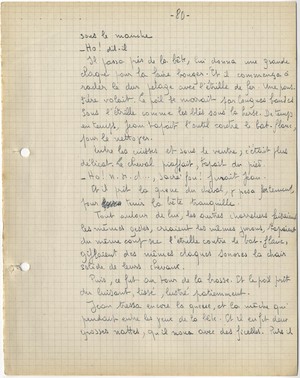 - 80 -
sous le manche
_ Ho! dit-il
Il passa près de la bête, lui donna une grande
claque pour la faire bouger. Et il commença à
racler le dur pelage avec l'étrille de fer. Une pous
sière volait, le poil se moirait son longues bandes
sous l'étrille comme les blés sous la brise. De temps
en temps, Jean tapait l'outil contre le bat-flanc
pour le nettoyer.
Entre les cuisses et sous le ventre, c'était plus
délicat. Le cheval piaffait, tapait du pied.
_ Ho! n.. d.. , sacré fou! jurait Jean.
Et il prit la queue du cheval, y pesa fortement,
pour tenir la bête tranquille
Tout autour de lui, les autres charretiers faisaient
les mêmes gestes, criaient les mêmes jurons, tapaient
du même coup sec l'étrille contre le bat-flanc,
giflaient des mêmes claques sonores la chair
de leurs chevaux.
Puis, ce fut au tour de la brosse. Et le poil prit
du luisant, lissé, lustré patiemment.
Jean tressa encore la queue, et la mèche qui
pendait entre les yeux de la bête. Et il en fit deux
grosses nattes, qu'il noua avec des ficelles. Puis il